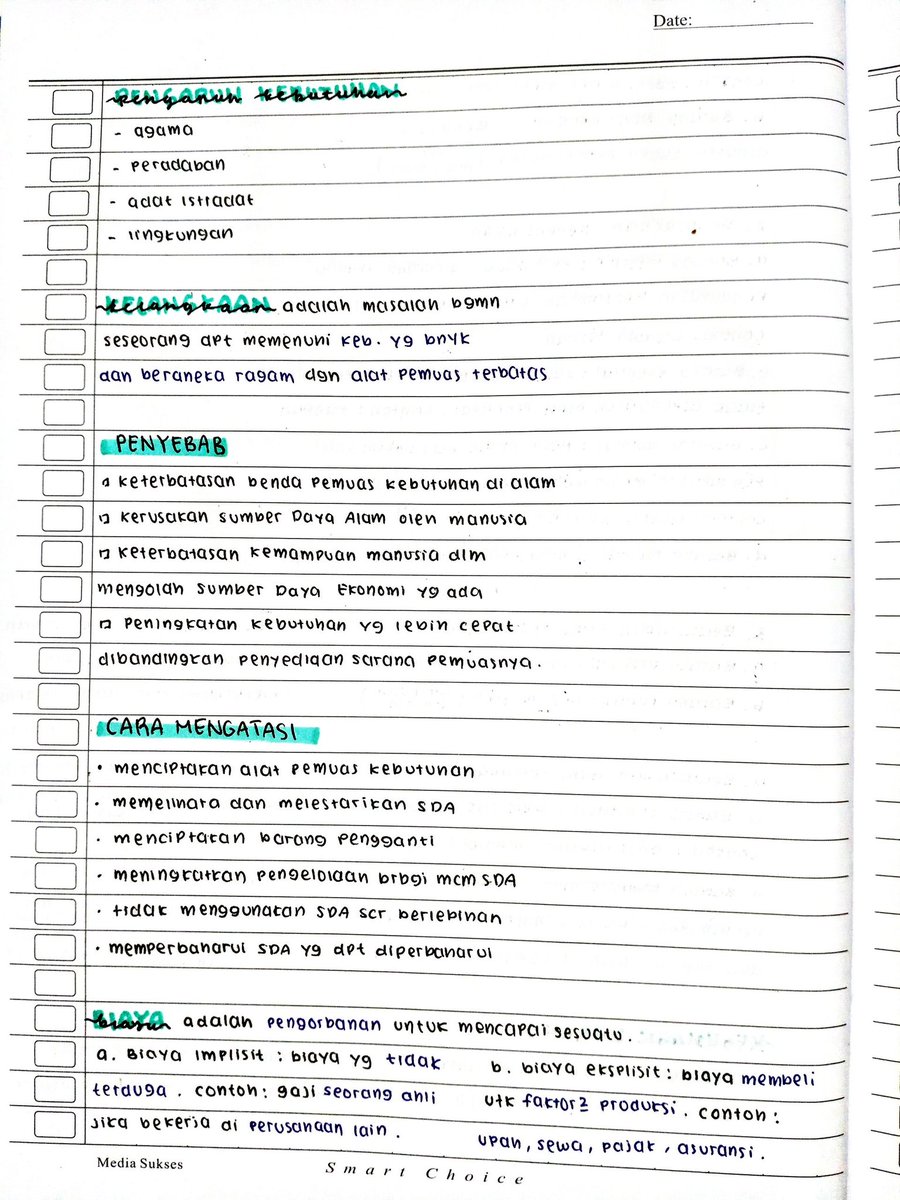 Date:
PENGARUH KEBUTUHAN
- agama
- peradaban
- adat istradat
- lingkungan
KELANGKAAN adalah masalah bgmn
seseorang dpt memenuhi keb. yg bnyk
dan beraneka ragam dgn alat pemuas terbatas
PENYEBAB
▫ keterbatasan benda pemuas kebutuhan di alam
▫ kerusakan sumber Daya Alam oleh manusia
▫ keterbatasan kemampuan manusia dlm
mengolah sumber Daya Ekonomi yg ada
▫ Peningkatan kebutuhan yg lebih cepat
dibandingkan penyediaan sarana pemuasnya.
CARA MENGATASI
• menciptakan alat pemuas kebutuhan
• memelihara dan melestarikan SDA
• menciptakan barang pengganti
• meningkatkan pengelolaan brbgi mcm SDA
• tidak menggunakan SDA scr berlebihan
• memperbaharui SDA yg dpt diperbaharui
BIAYA adalah pengorbanan untuk mencapai sesuatu.
a. Biaya implisit : biaya yg tidak
terduga. contoh: gaji seorang ahli
jika bekerja di perusahaan lain.
b. biaya eksplisit : biaya membeli
utk faktor2 produksi. contoh:
upah, sewa, pajak, asuransi.
Media Sukses
Smart Choice